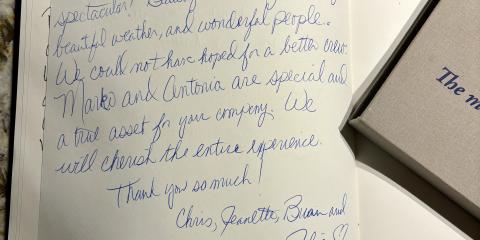 spectacular!
beautiful weather, and wonderful people.
We could not have hoped for a better crew.
Marko and Antonia are special and
a true asset for your company. We
will cherish the entire experience.
Thank you so much!
Chris, Jeanette, Brian and
The m